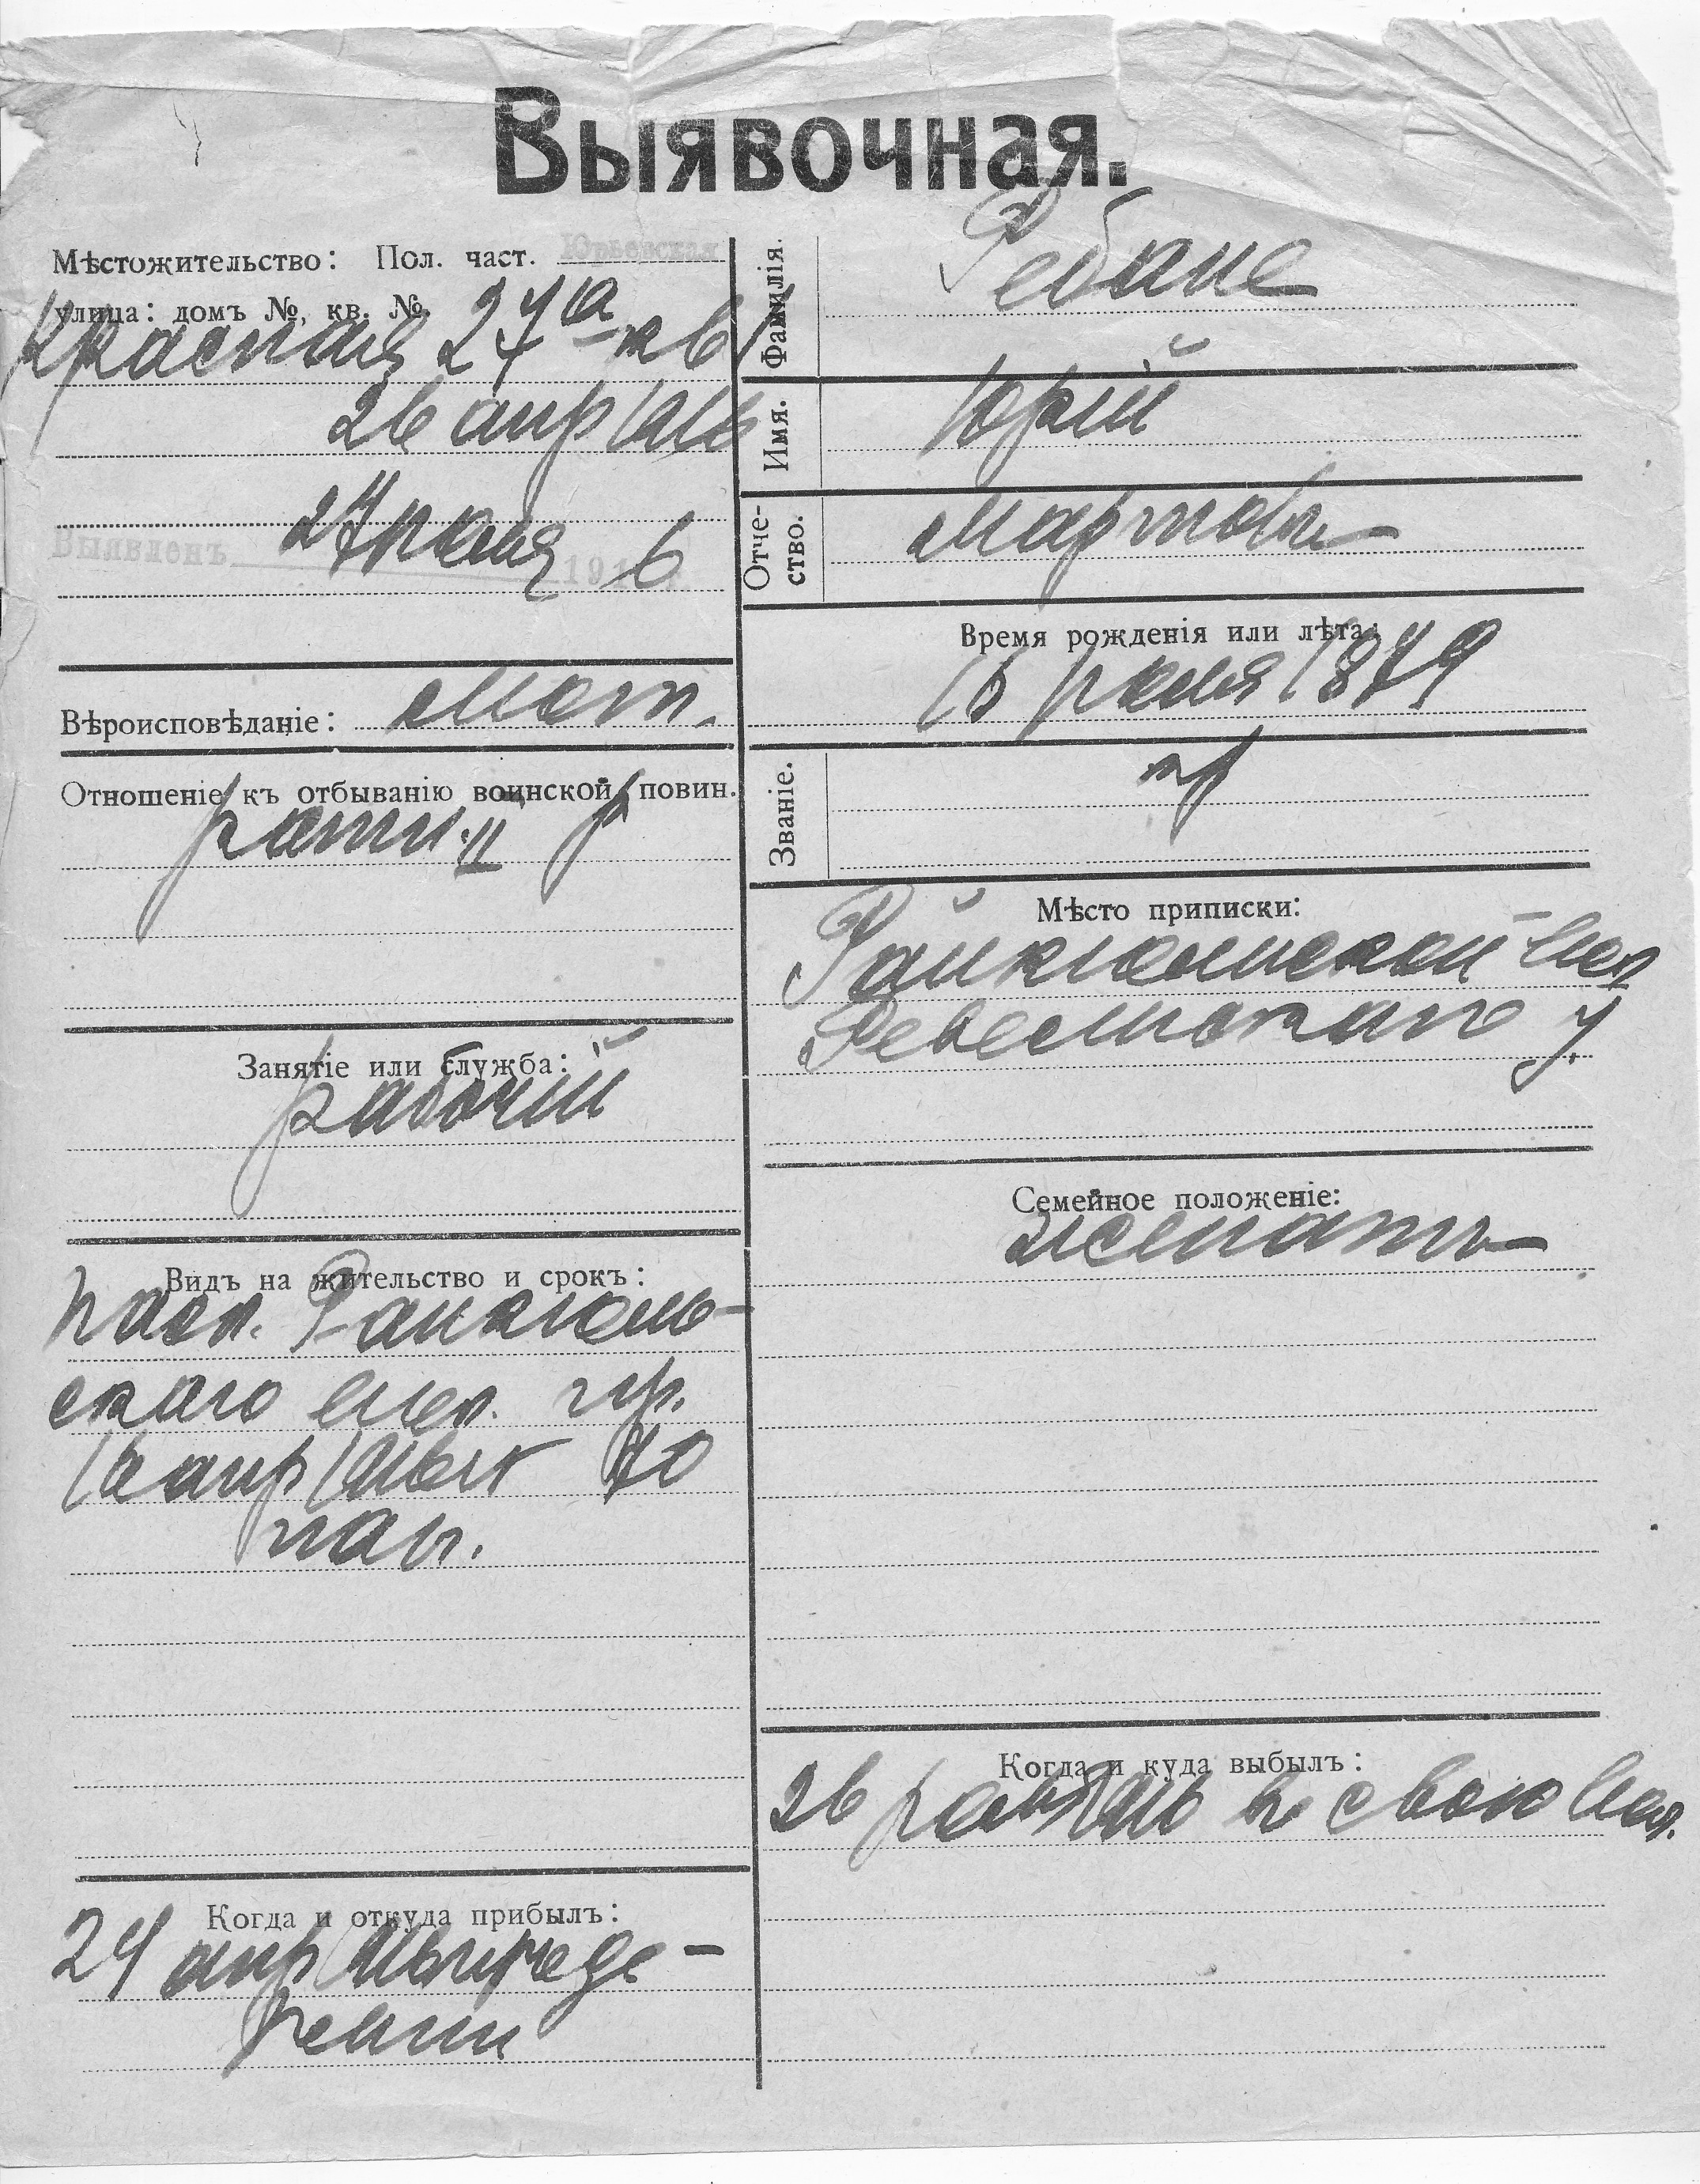 Выявочная.
Мѣстожительство: Пол. част. Юрьевская
улица: домъ №, кв. №.
Красная 27а кв 1
26 апр 1916
27 апреля 6
Выявленъ 191
Вѣроисповѣданіе: Лют.
Отношеніе къ отбыванію воинской повин.
ратн. II р
Занятіе или служба:
рабочій
Видъ на жительство и срокъ:
пасп. Райкюль-
скаго вол. пр.
апр 1916 г 70
Когда и откуда прибылъ:
24 апр 1916 г
Фамилія. Ребане
Имя. Юрій
Отче-
ство. Мартов.
Время рожденія или лѣта:
1879
Званіе. кр
Мѣсто приписки:
Райкюльской вол
Ревельскаго у.
Семейное положеніе:
женатъ
Когда и куда выбылъ:
26 въ свою вол.